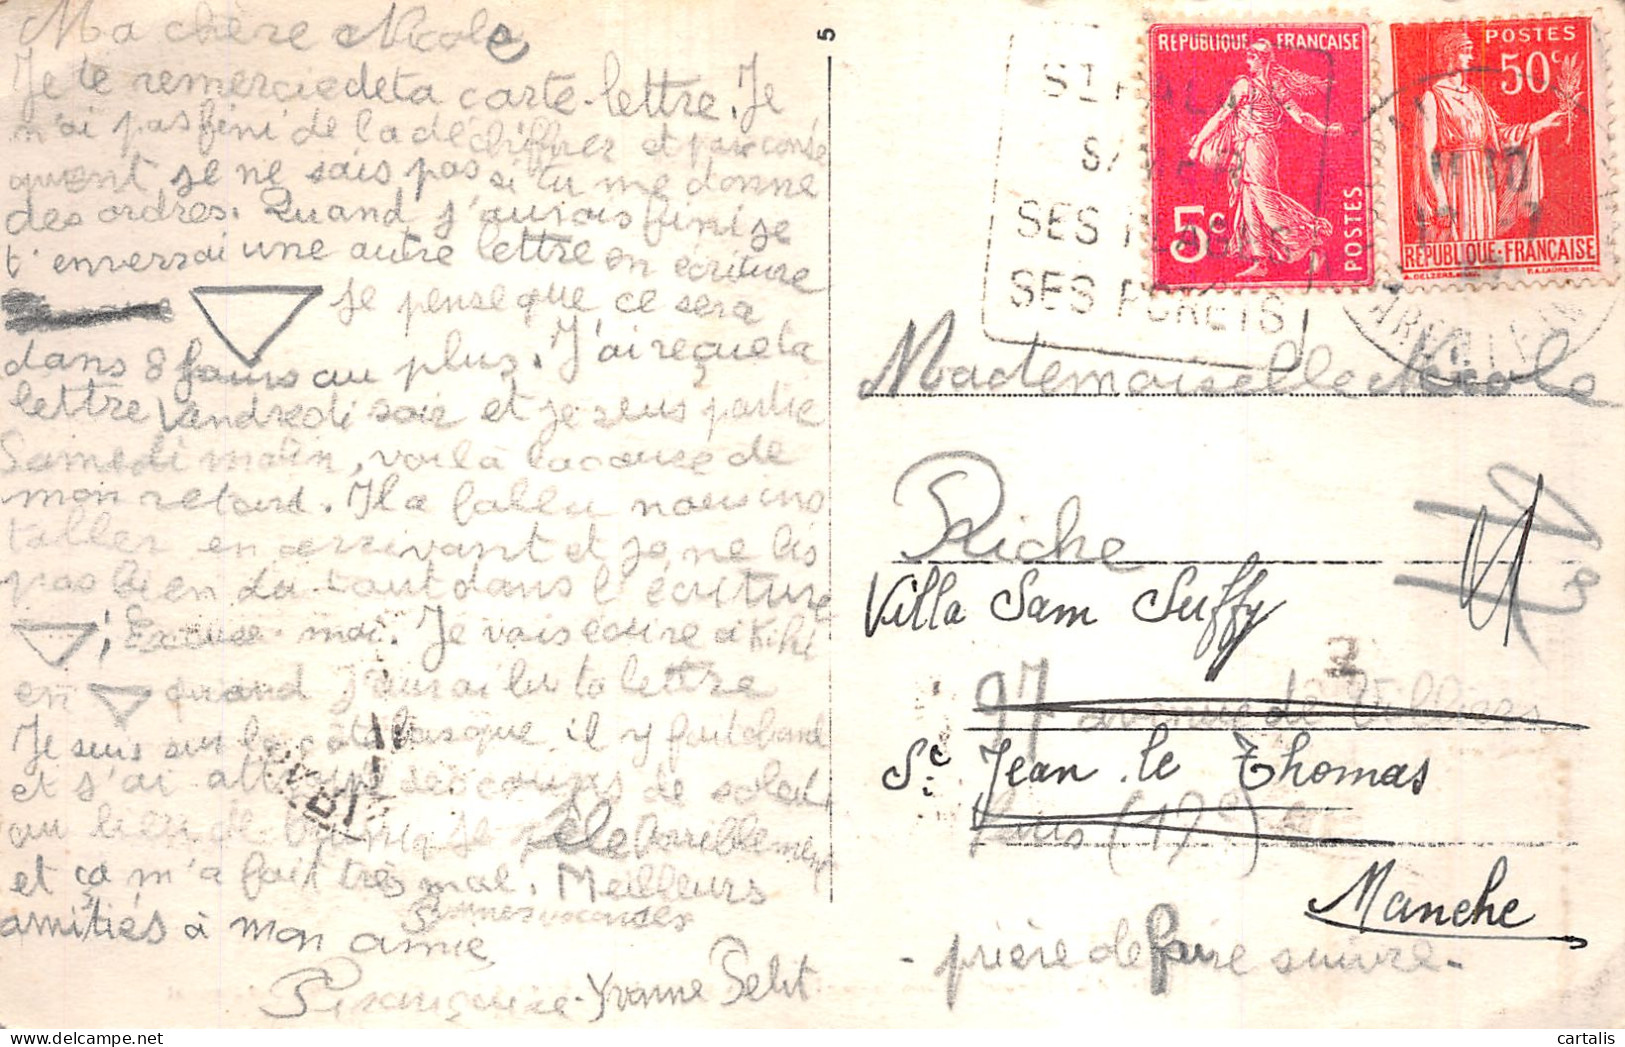 Ma chère Nicole
Je te remercie de ta carte-lettre. Je
n'ai pas fini de la déchiffrer et par consé
quent je ne sais pas si tu me donne
des ordres. Quand j'aurais fini je
t'enverrai une autre lettre en écriture
je pense que ce sera
dans 8 jours au plus. J'ai reçue ta
lettre Vendredi soir et je suis partie
Samedi matin, voilà la cause de
mon retard. Il a fallu nous ins
taller en arrivant et je ne lis
pas bien du tout dans l'écriture
! Excuse-moi. Je vais écrire à Kiki
en quand j'aurai lu ta lettre
Je suis sur la côte basque il y fait chaud
et j'ai attrapé des coups de soleil
au lieu de brunir je pèle terriblement
et ça m'a fait très mal. Meilleurs
amitiés à mon amie
Bonnes vacances
Françoise-Yvonne Petit
5
RÉPUBLIQUE FRANÇAISE
5c
POSTES
POSTES
50c
RÉPUBLIQUE-FRANÇAISE
SES PLAGES
SES FORETS
Mademoiselle Nicole
Riche
Villa Sam Suffy
97 avenue de Villiers
2
St Jean le Thomas
Paris (17e)
Manche
- prière de faire suivre -
cartalis